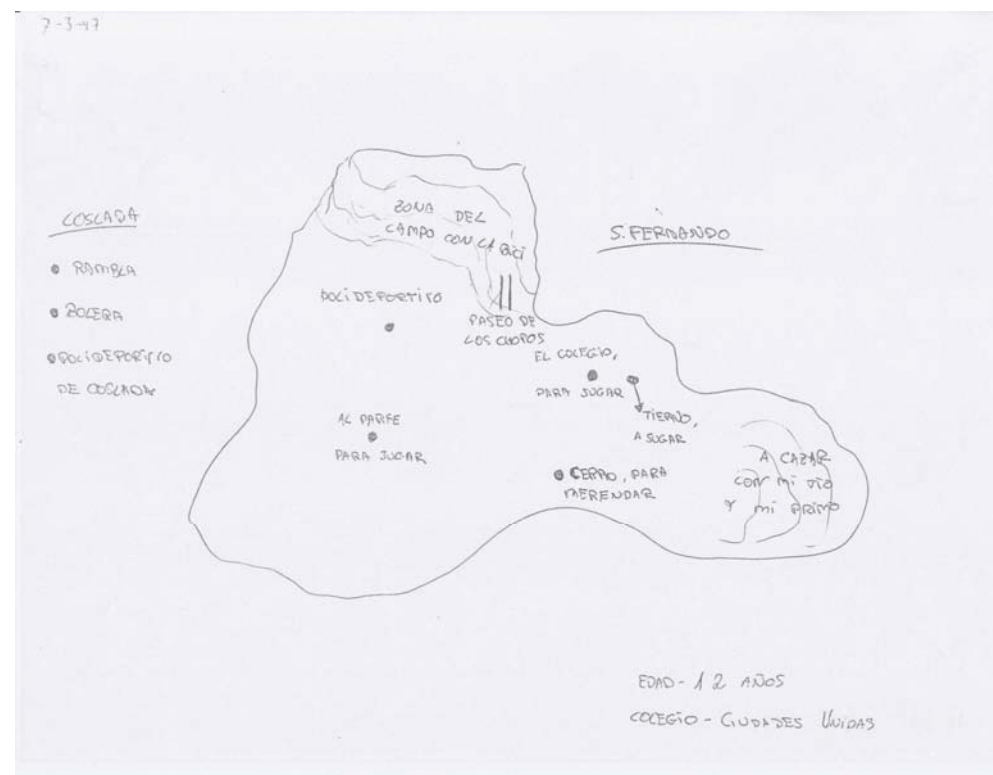 7-3-47
COSLADA
RAMBLA
BOLERA
POLIDEPORTIVO
DE COSLADA
ZONA DEL
CAMPO CON LA BICI
S. FERNANDO
POLIDEPORTIVO
PASEO DE
LOS CHOPOS
EL COLEGIO,
PARA JUGAR
TIERNO,
A JUGAR
AL PARKE
PARA JUGAR
CERRO, PARA
MERENDAR
A CAZAR
CON MI TIO
Y MI PRIMO
EDAD - 12 AÑOS
COLEGIO - CIUDADES UNIDAS